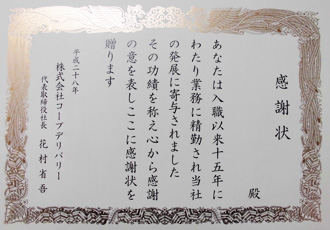 感謝状
殿
あなたは入職以来十五年に
わたり業務に精勤され当社
の発展に寄与されました
その功績を称え心から感謝
の意を表しここに感謝状を
贈ります
平成二十八年
株式会社コープデリバリー
代表取締役社長 花村省吾